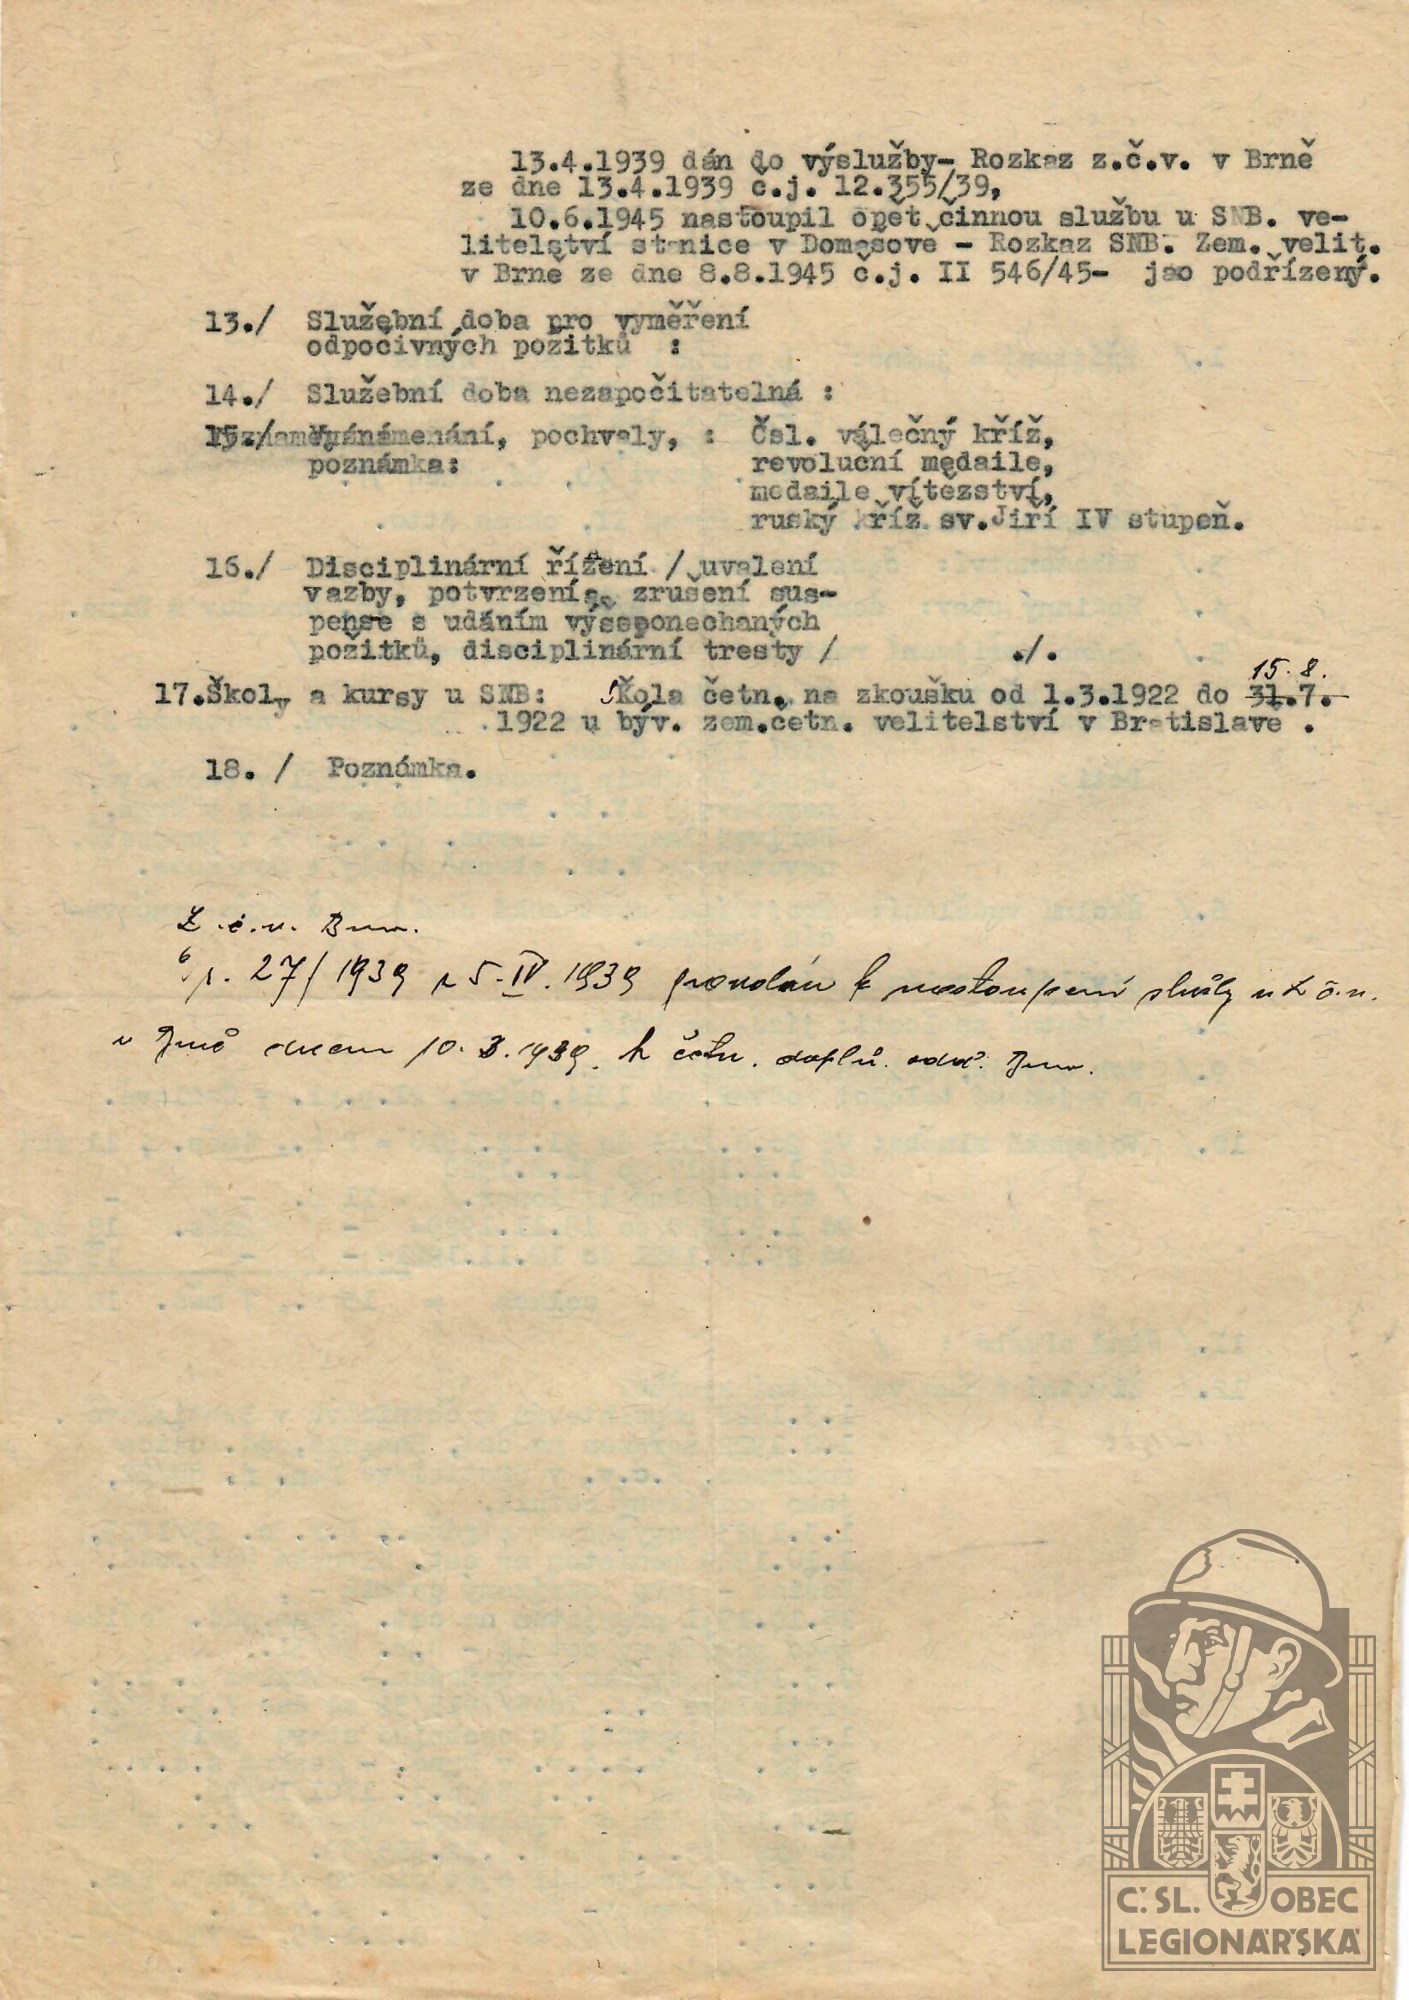 13.4.1939 dán do výslužby- Rozkaz z.č.v. v Brně
ze dne 13.4.1939 č.j. 12.355/39,
10.6.1945 nastoupil opět činnou službu u SNB. ve-
litelství stanice v Domašově - Rozkaz SNB. Zem. velit.
v Brně ze dne 8.8.1945 č.j. II 546/45- jao podřízený.
13./ Služební doba pro vyměření
odpočivných požitků :
14./ Služební doba nezapočitatelná :
15./ Vyznamenání, pochvaly, : Čsl. válečný kříž,
poznámka: revoluční medaile,
medaile vítězství,
ruský kříž sv.Jiří IV stupeň.
16./ Disciplinární řízení / uvalení
vazby, potvrzení a zrušení sus-
pense s udáním výše ponechaných
požitků, disciplinární tresty / ./.
15.8.
17.Školy a kursy u SNB: Škola četn. na zkoušku od 1.3.1922 do 31.7.
1922 u býv. zem.četn. velitelství v Bratislavě .
18. / Poznámka.
Z.č.v. Brno.
27/1939 z 5.IV.1939 povolán k nastoupení služby u z.č.v.
v Brně dnem 10. 1939. k četn. doplň. odd. Brno.
Č.SL. OBEC
LEGIONÁŘSKÁ